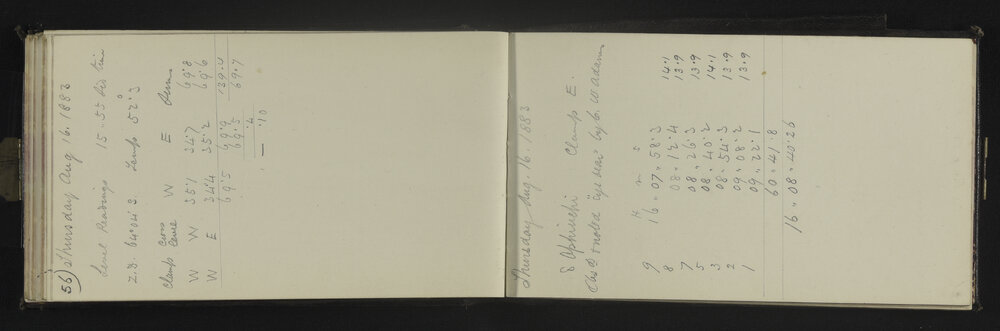 56) Thursday Aug 16. 1883
Level Readings 15.55 Sid time
Z.D. 64°04'3. Temp 52°.3
Clamp Cross Level W E Sum
W W 35.1 34.7 69.8
W E 34.4 35.2 69.6
69.5 69.9 139.4
69.5 69.7
.4
— .10
Thursday Aug. 16. 1883
δ Ophiuchi Clamp E.
Obsd & noted by C. W Adams
H m s
9 16 " 07 " 58.3
8 08 " 12.4 14.1
7 08 " 26.3 13.9
5 08 " 40.2 13.9
3 08 " 54.3 14.1
2 09 " 08.2 13.9
1 09 " 22.1 13.9
60 " 41.8
16 " 08 " 40.26